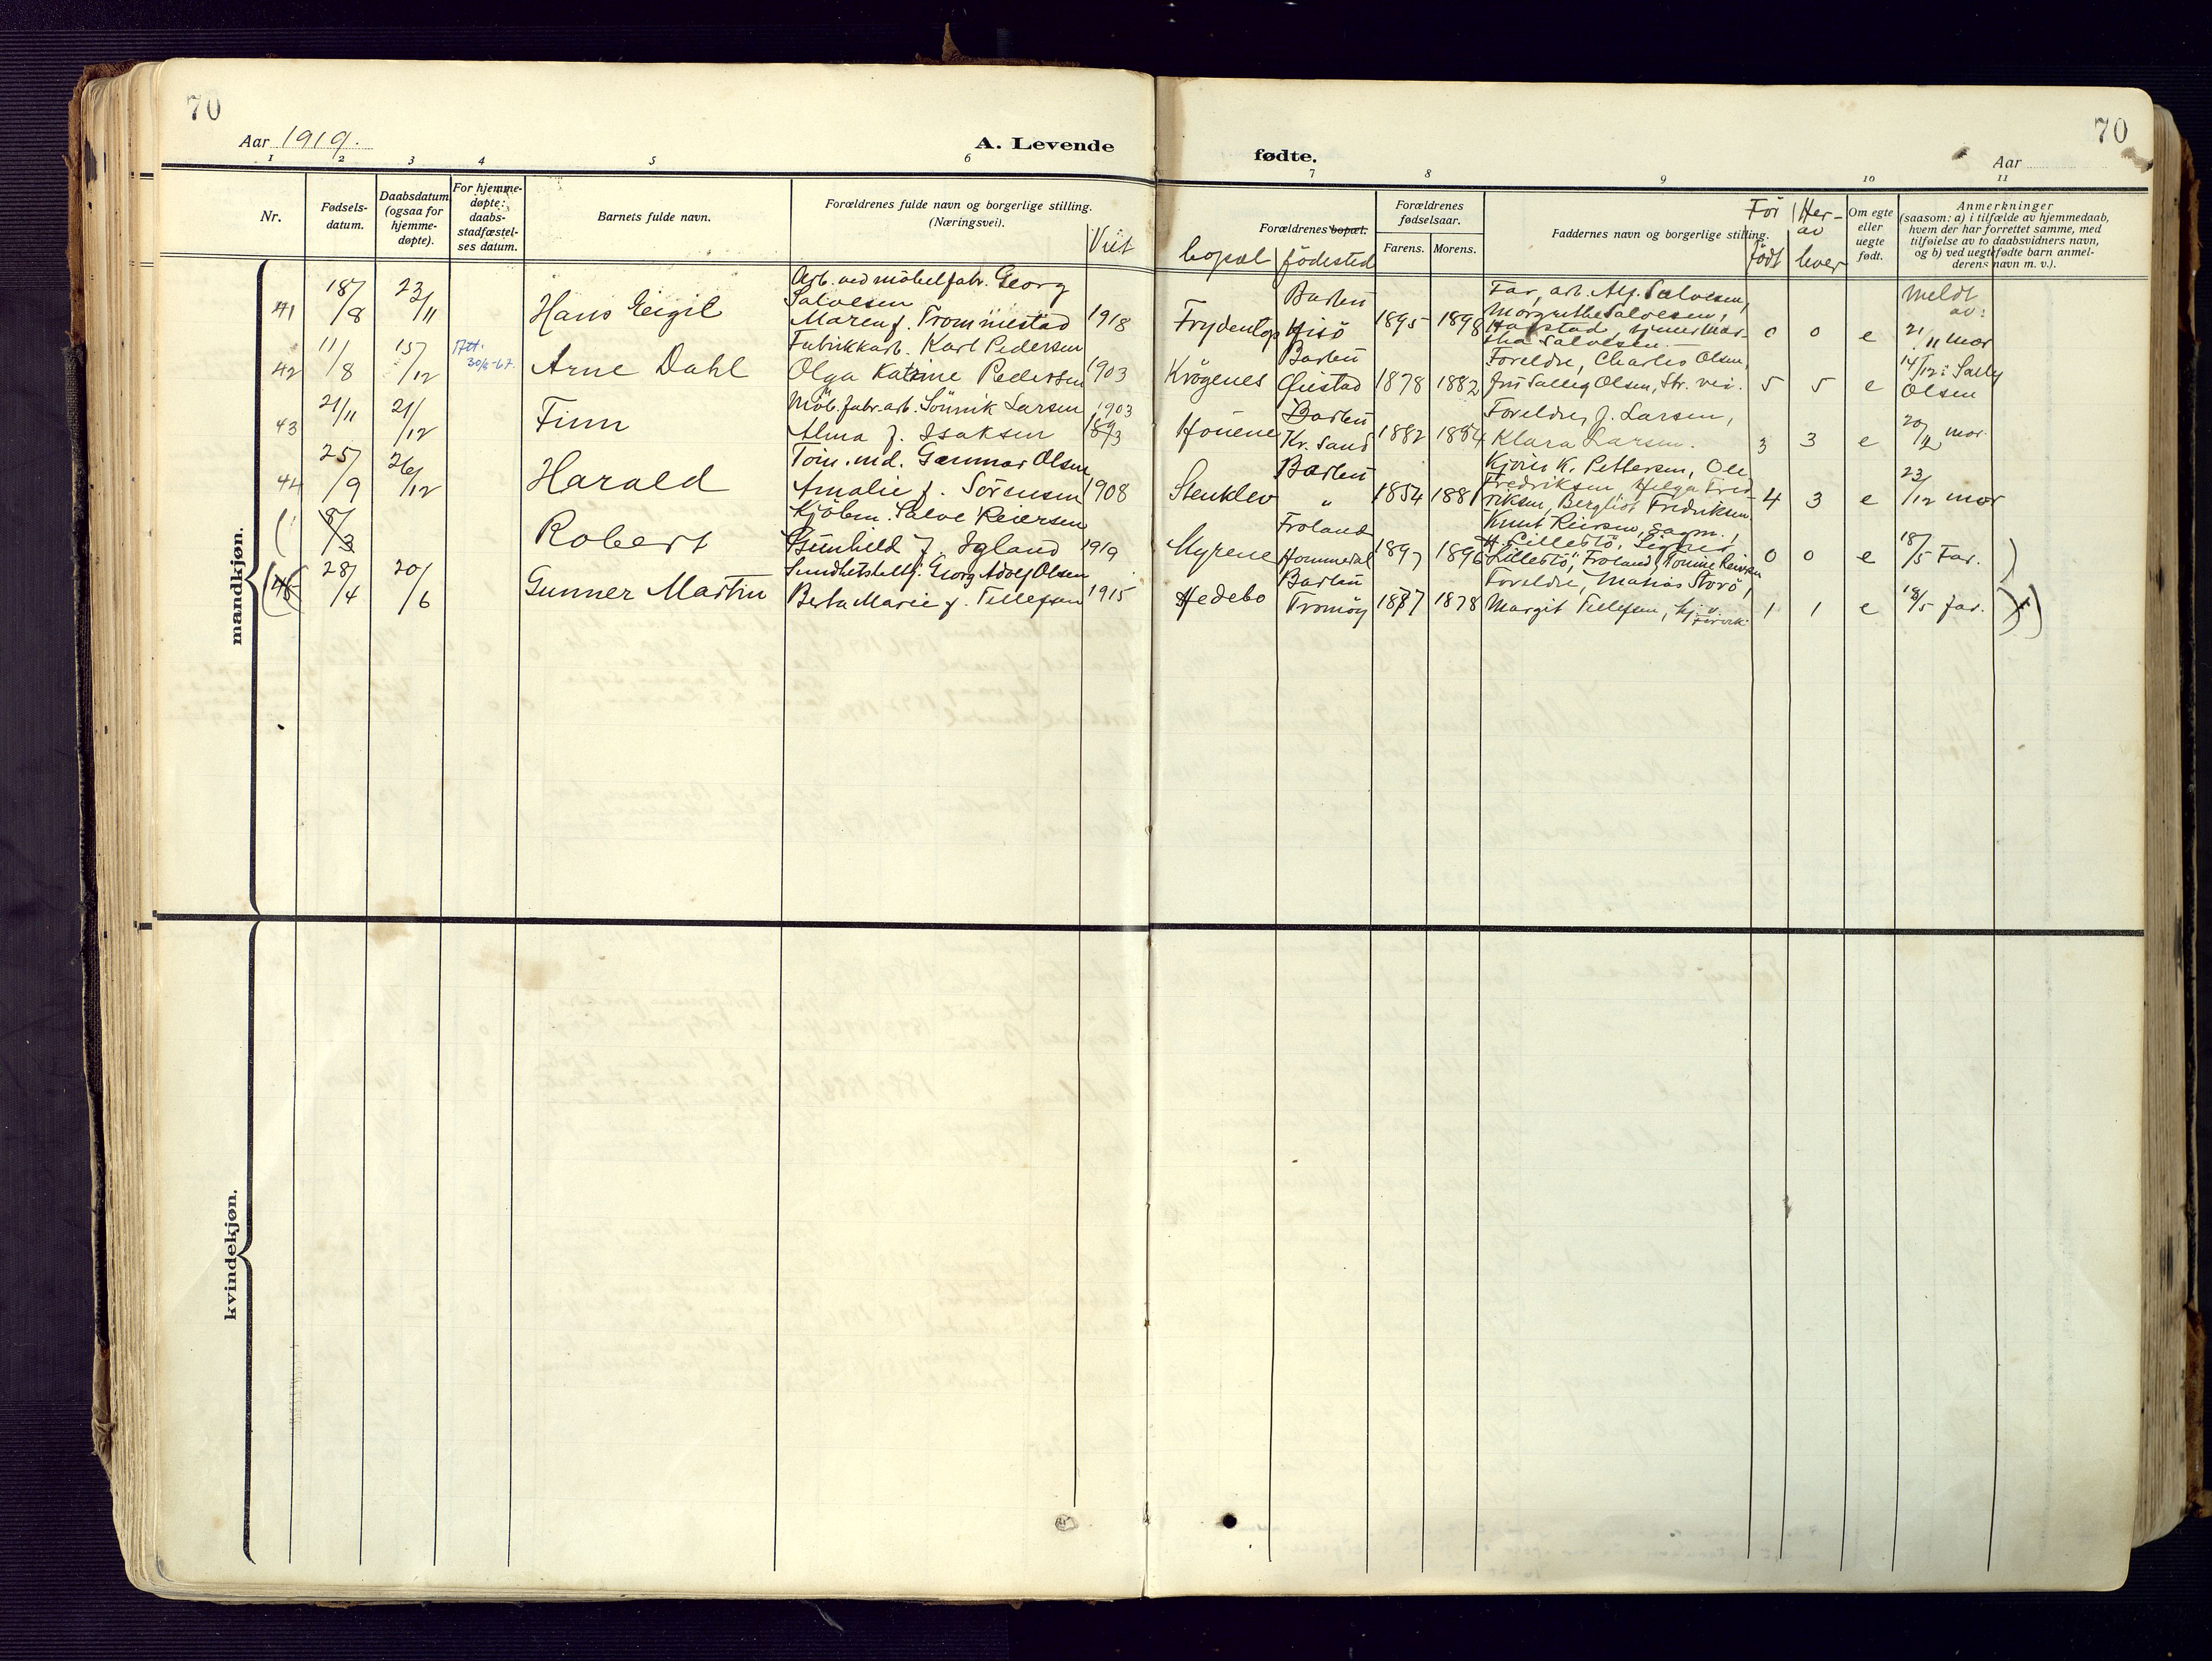 70
70
Aar 1919.
A. Levende
fødte.
Aar
1 2 3 4 5 6 7 8 9 10 11
Nr.
Fødsels-
datum.
Daabsdatum
(ogsaa for
hjemme-
døpte).
For hjemme-
døpte:
daabs-
stadfæstel-
ses datum.
Barnets fulde navn.
Forældrenes fulde navn og borgerlige stilling.
(Næringsvei).
Viet
Forældrenes bopæl.
bopæl fødested
Forældrenes
fødselsaar.
Farens. Morens.
Faddernes navn og borgerlige stilling.
Før
født
Her-
av
lever
Om egte
eller
uegte
født.
Anmerkninger
(saasom: a) i tilfælde av hjemmedaab,
hvem der har forrettet samme, med
tilføielse av to daabsvidners navn,
og b) ved uegtefødte barn anmel-
derens navn m. v.).
mandkjøn.
41 18/8 23/11 Hans Eigil
Arb. ved möbelfabr. Georg
Salvesen
Maren f. Trommestad 1918
Barbu
Hisö 1895 1898
Far, arb. Alf. Salvesen,
0 0 e
Meldt
av:
21/11 mor
42 11/8 15/12 Att. 30/6-67. Arne Dahl
Fabrikkarb. Karl Pedersen
Olga Katrine Pedersen 1903
Krögenes
Barbu
Öiestad 1878 1882
Foreldre, Charles Olsen,
5 5 e
14/12: Sally
Olsen
43 21/11 21/12 Finn
Möb. fabr. arb. Sönnik Larsen 1903
Alma f. Isaksen
Barbu
Kr. Sand 1882 1884
Foreldre, J. Larsen,
Klara Larsen.
3 3 e
mor
44 25/9 26/12 Harald
Töm. md. Gunnar Olsen
Amalie f. Sörensen 1908
Stenklev
Barbu
" 1884 1881
Kjöin K. Pettersen, Ole
Fredriksen, Helga Fred-
riksen, Bergliot Fredriksen
4 3 e
23/12 mor
8/3 Robert
Kjöbm. Salve Reiersen
Gunhild f. Igland 1919
Myrene
Froland
Hommedal 1897 1896
0 0 e
18/5 Far.
45 28/4 20/6 Gunner Martin
Georg Adolf Olsen
Berta Marie f. Tellefsen 1915
Hedebo
Barbu
Tromöy 1887 1878
Foreldre, Matias Storö,
Margit Tellefsen,
1 1 e
18/5 far.
kvindekjøn.